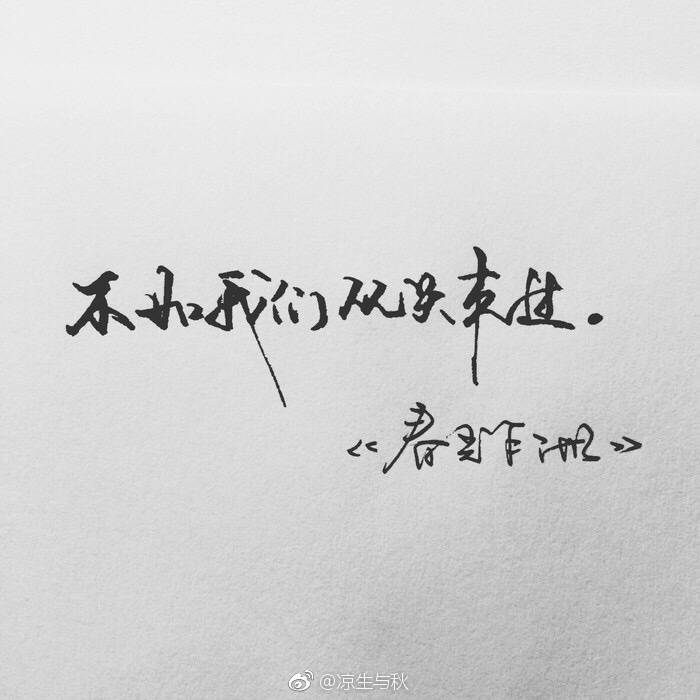 不如我们从头来过。
《春光乍泄》
@凉生与秋